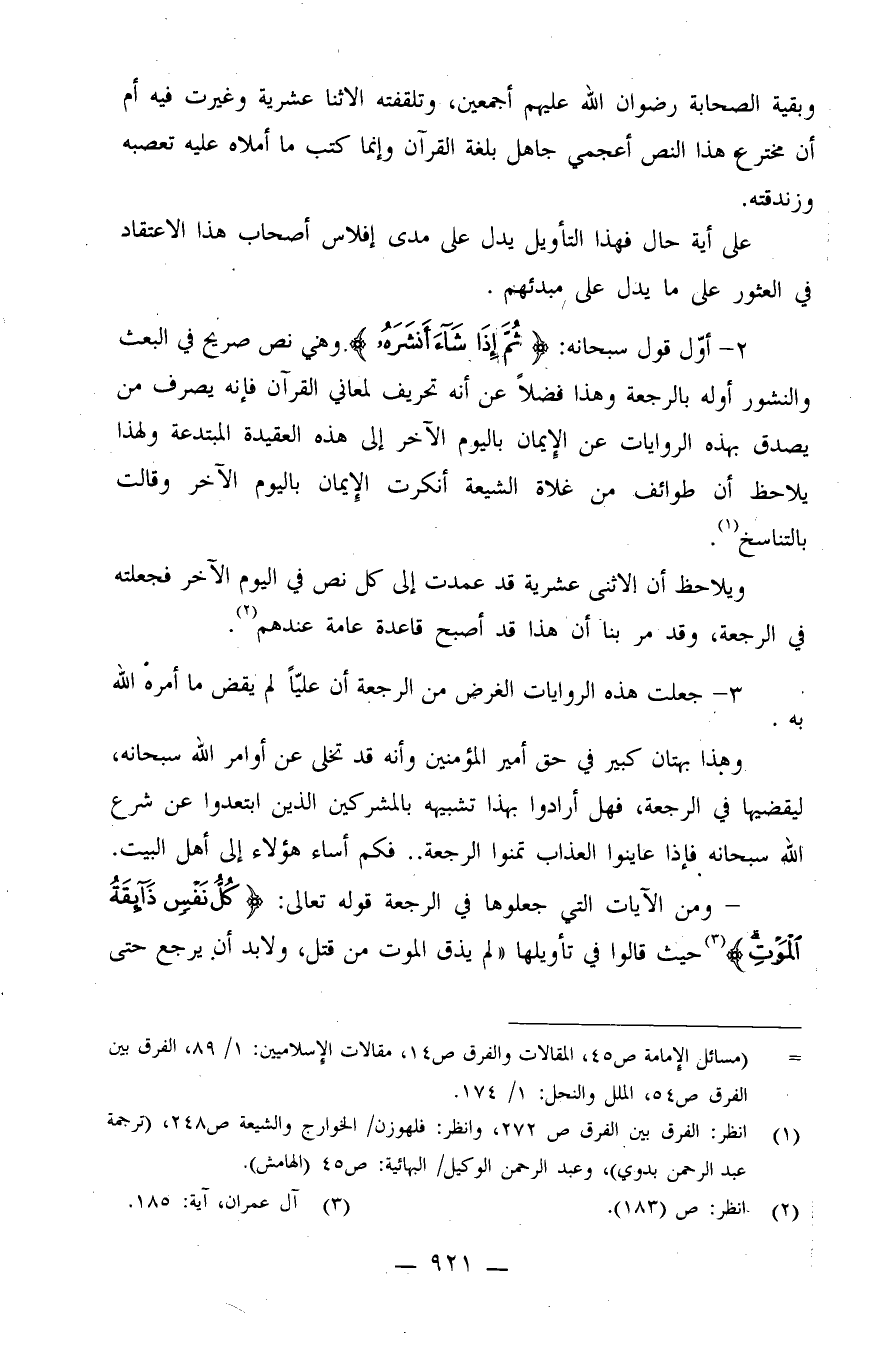 وبقية الصحابة رضوان الله عليهم أجمعين، وتلقفته الاثنا عشرية وغيرت فيه أم
أن مخترع هذا النص أعجمي جاهل بلغة القرآن وإنما كتب ما أملاه عليه تعصبه
وزندقته.
على أية حال فهذا التأويل يدل على مدى إفلاس أصحاب هذا الاعتقاد
في العثور على ما يدل على مبدئهم .
٢- أوّل قول سبحانه: ﴿ ثُمَّ إِذَا شَآءَ أَنشَرَهُۥ ﴾. وهي نص صريح في البعث
والنشور أوله بالرجعة وهذا فضلاً عن أنه تحريف لمعاني القرآن فإنه يصرف من
يصدق بهذه الروايات عن الإيمان باليوم الآخر إلى هذه العقيدة المبتدعة ولهذا
يلاحظ أن طوائف من غلاة الشيعة أنكرت الإيمان باليوم الآخر وقالت
بالتناسخ(١).
ويلاحظ أن الاثنى عشرية قد عمدت إلى كل نص في اليوم الآخر فجعلته
في الرجعة، وقد مر بنا أن هذا قد أصبح قاعدة عامة عندهم(٢).
٣- جعلت هذه الروايات الغرض من الرجعة أن عليّاً لم يقض ما أمره الله
به .
وهذا بهتان كبير في حق أمير المؤمنين وأنه قد تخلى عن أوامر الله سبحانه،
ليقضيها في الرجعة، فهل أرادوا بهذا تشبيهه بالمشركين الذين ابتعدوا عن شرع
الله سبحانه فإذا عاينوا العذاب تمنوا الرجعة.. فكم أساء هؤلاء إلى أهل البيت.
- ومن الآيات التي جعلوها في الرجعة قوله تعالى: ﴿ كُلُّ نَفْسٍ ذَآئِقَةُ
ٱلْمَوْتِۗ ﴾(٣) حيث قالوا في تأويلها «لم يذق الموت من قتل، ولابد أن يرجع حتى
= (مسائل الإمامة ص٤٥، المقالات والفرق ص١٤، مقالات الإسلاميين: ١/ ٨٩، الفرق بين
الفرق ص٥٤، الملل والنحل: ١/ ١٧٤.
(١) انظر: الفرق بين الفرق ص ٢٧٢، وانظر: فلهوزن/ الخوارج والشيعة ص٢٤٨، (ترجمة
عبد الرحمن بدوي)، وعبد الرحمن الوكيل/ البهائية: ص٤٥ (الهامش).
(٢) انظر: ص (١٨٣). (٣) آل عمران، آية: ١٨٥.
— ٩٢١ —